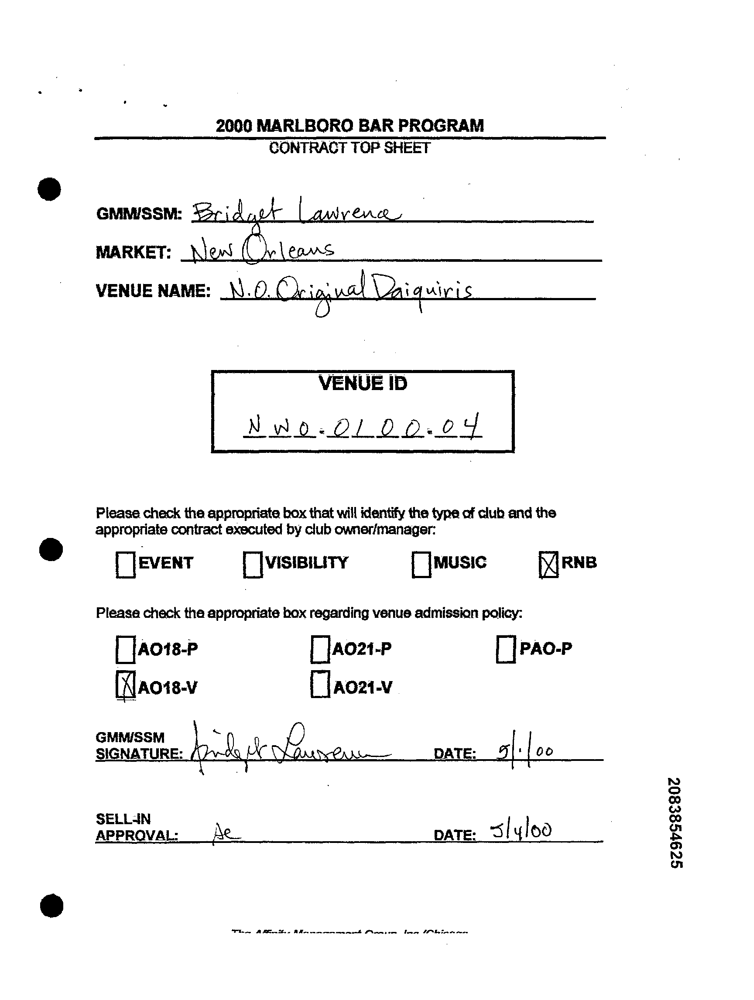 2000 MARLBORO BAR PROGRAM
CONTRACT TOP SHEET
GMM/SSM: Bridget Lawrence
MARKET: New Orleans
VENUE NAME: N.O. Original Daiquiris
VENUE ID
N W O - 0 1 0 0 - 0 4
Please check the appropriate box that will identify the type of club and the
appropriate contract executed by club owner/manager:
EVENT VISIBILITY MUSIC RNB
Please check the appropriate box regarding venue admission policy:
AO18-P AO21-P PAO-P
AO18-V AO21-V
GMM/SSM
SIGNATURE: Bridget Lawrence DATE: 5/1/00
SELL-IN
APPROVAL: DATE: 5/4/00
2083854625